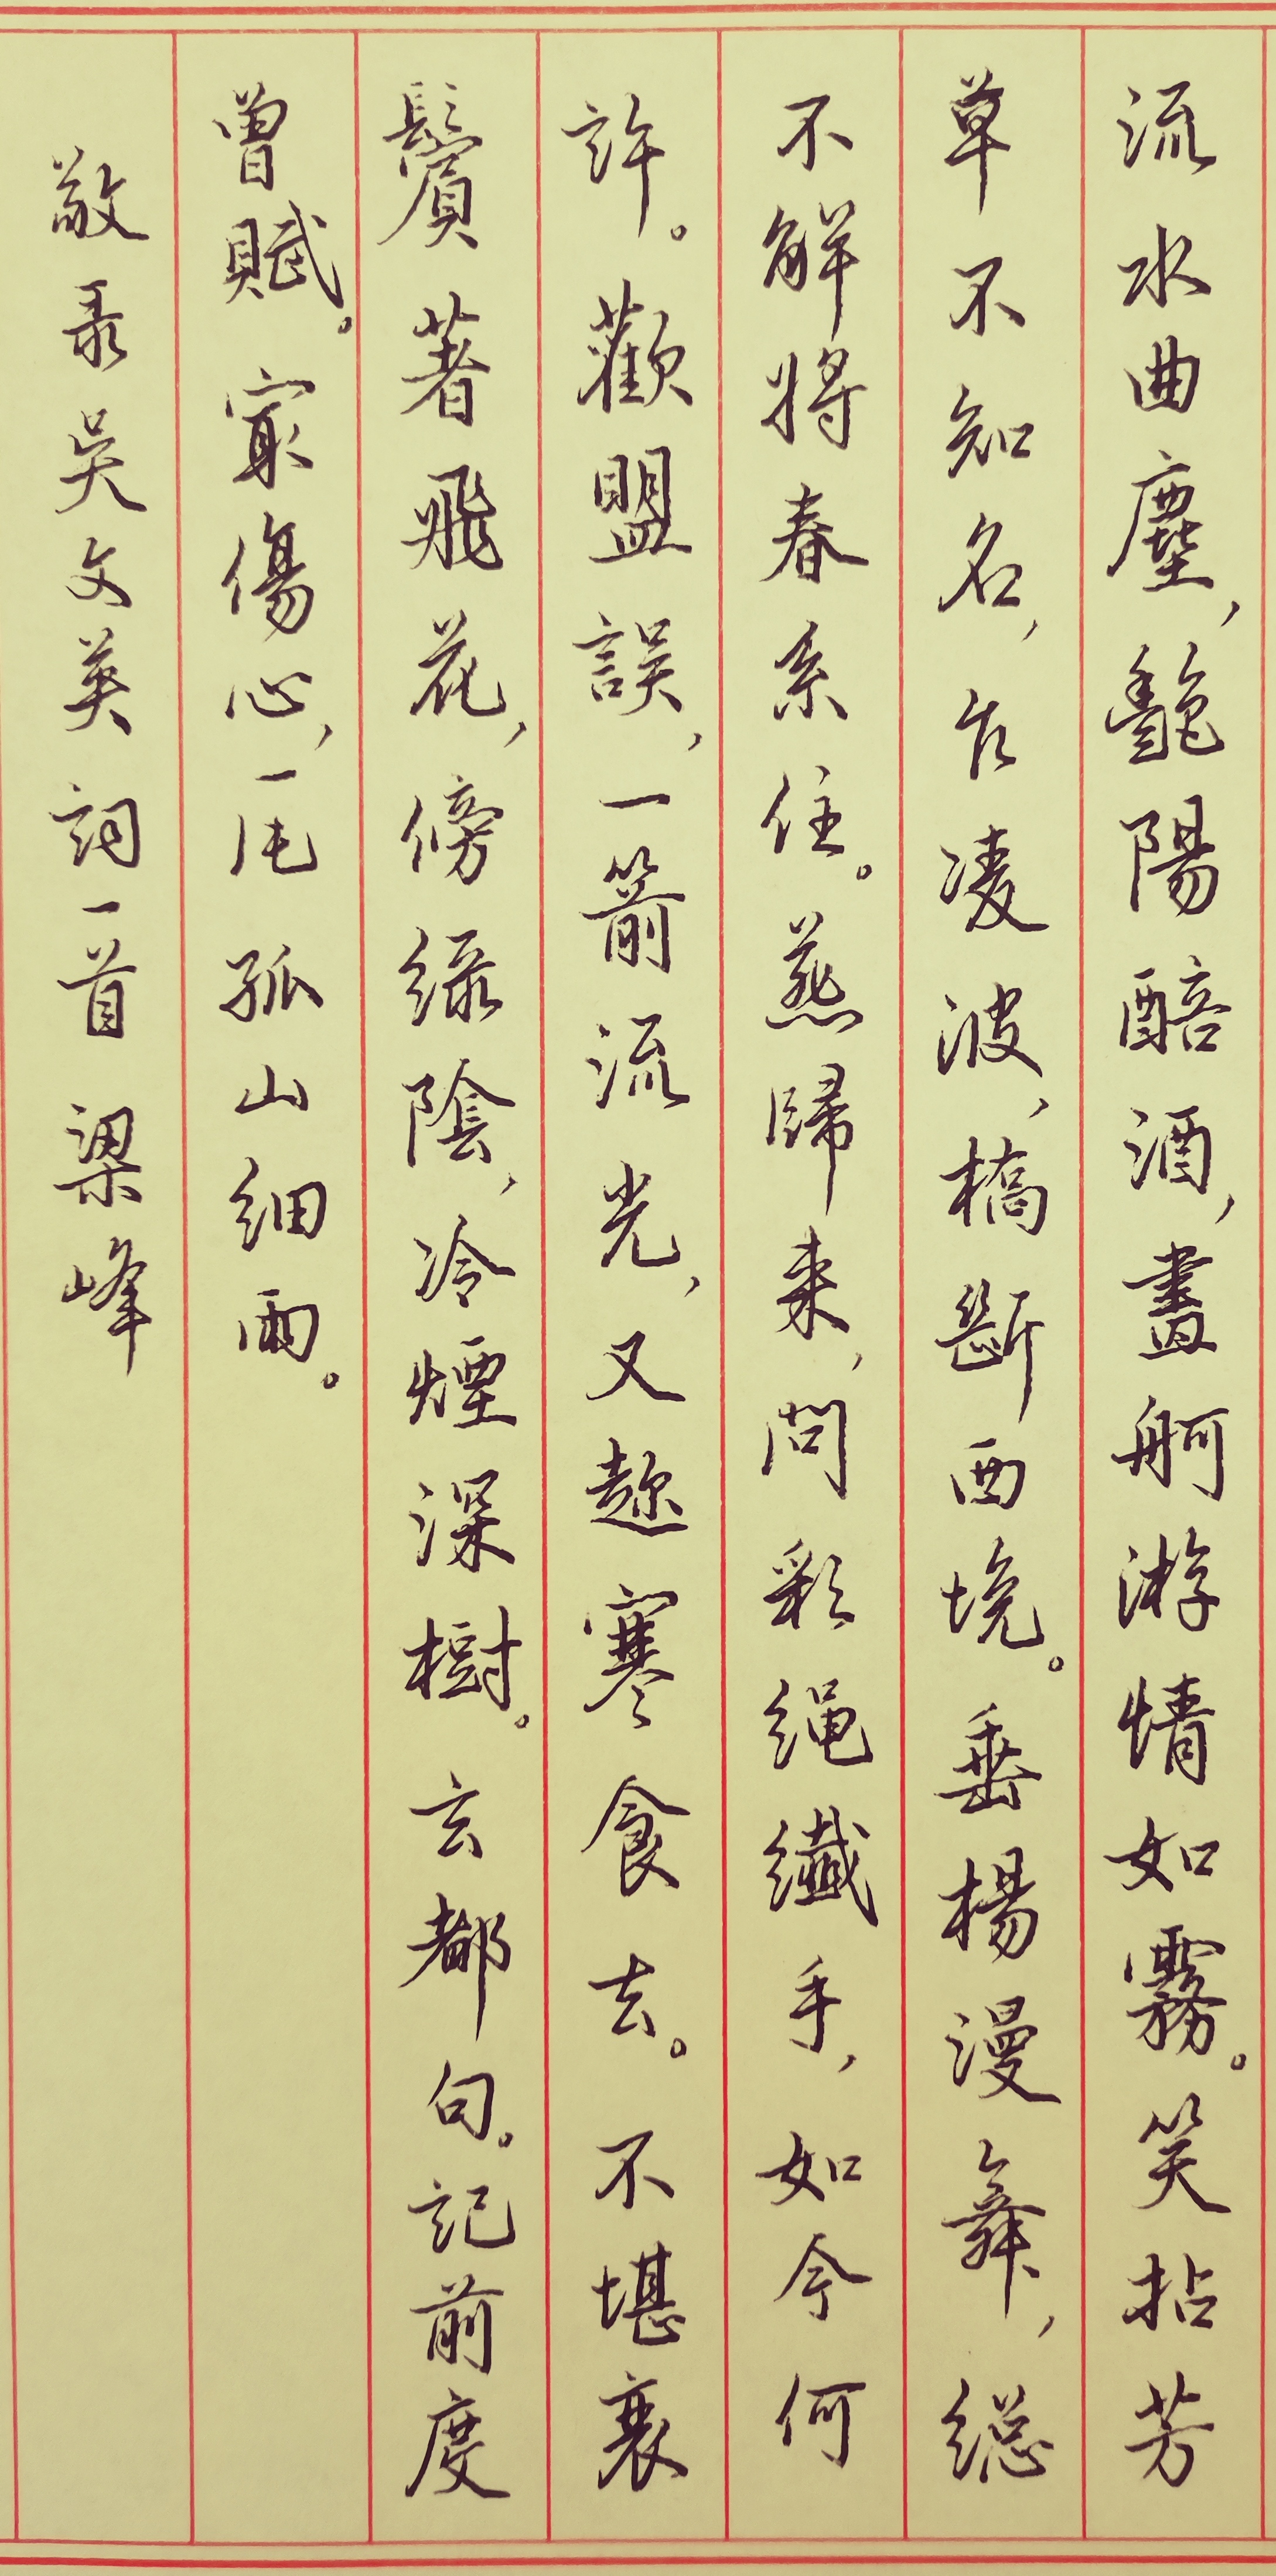 流水曲塵，艷陽醅酒，畫舸游情如霧。笑拈芳
草不知名，乍凌波、橋斷西堍。垂楊漫舞，總
不解將春系住。燕歸來，問彩绳纖手，如今何
許。歡盟誤，一箭流光，又趂寒食去。不堪衰
鬢著飛花，傍綠陰，冷煙深樹。玄都句。記前度
曾賦。寂傷心，一片孤山細雨。
敬录吳文英詞一首 梁峰